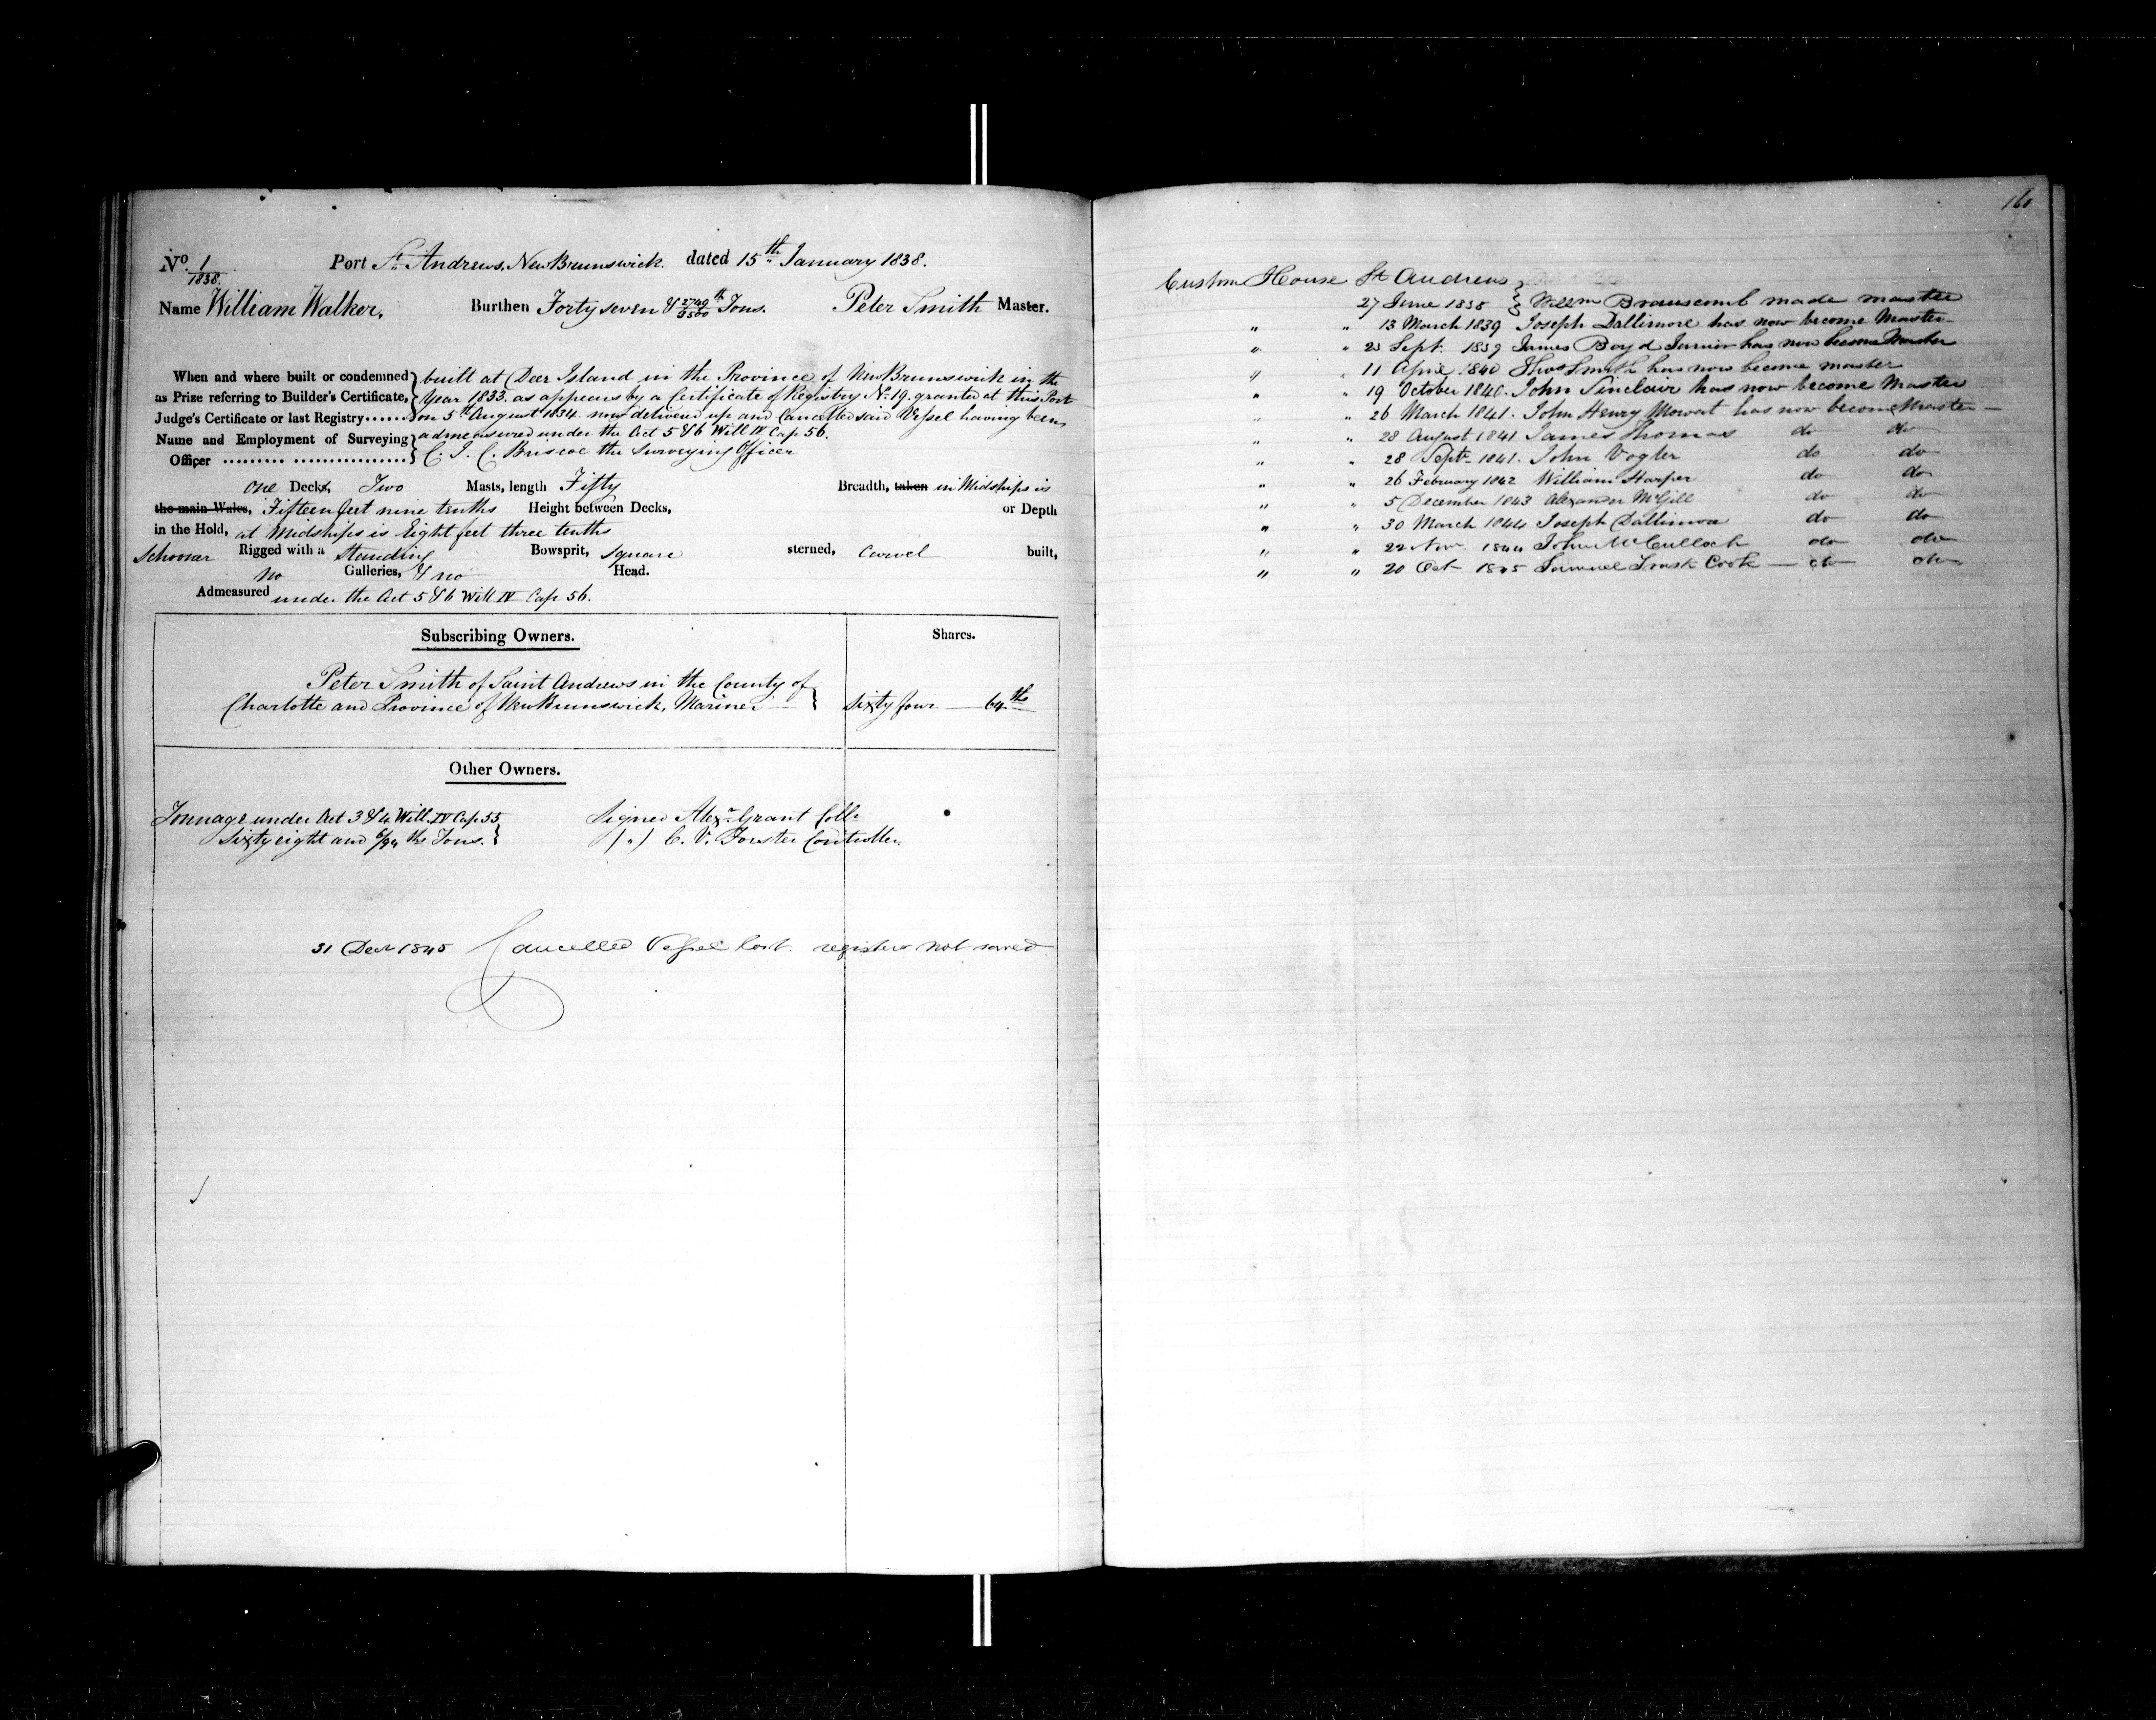 No. 1/1838. Port St. Andrews, New Brunswick. dated 15th January 1838.
Name William Walker. Burthen Forty seven & 2749/3500th Tons. Peter Smith Master.
When and where built or condemned } built at Deer Island in the Province of New Brunswick in the
as Prize referring to Builder's Certificate, Year 1833. as appears by a Certificate of Registry No. 19. granted at this Port
Judge's Certificate or last Registry...... on 5th August 1834. now delivered up and Cancelled said Vessel having been
Name and Employment of Surveying } admeasured under the Act 5 & 6 Will IV Cap 56.
Officer ......... ................ C. J. C. Briscoe the Surveying Officer
one Decks, Two Masts, length Fifty Breadth, taken in Midships is
the main Wales, Fifteen feet nine tenths Height between Decks, or Depth
in the Hold, at Midships is Eight feet three tenths
Schooner Rigged with a Standing Bowsprit, square sterned, Carvel built,
no Galleries, & no Head.
Admeasured under the Act 5 & 6 Will IV Cap 56.
Subscribing Owners. Shares.
Peter Smith of Saint Andrews in the County of
Charlotte and Province of New Brunswick, Mariner Sixty four 64ths
Other Owners.
Tonnage under Act 3 & 4 Will. IV Cap 55 Signed Alexr Grant Collr
Sixty eight and 6/94 ths Tons. } (") C. V. Forster Controller
31 Decr 1845 Cancelled Vessel lost. register not saved
160
Custom House St Andrews }
27 June 1838 } Willm Branscomb made master
" " 13 March 1839 Joseph Dallimore has now become Master
" " 23 Sept. 1839 James Boyd Junior has now become Master
" " 11 April 1840 Thos Smith has now become master
" " 19 October 1840. John Sinclair has now become Master
" " 26 March 1841. John Henry Mowat has now become Master
" " 28 August 1841 James Thomas do do
" " 28 Septr 1841. John Vogler do do
" " 26 February 1842 William Harper do do
" " 5 December 1843 Alexander McGill do do
" " 30 March 1844 Joseph Dallimore do do
" " 22 Nov. 1844 John McCulloch do do
" " 20 Oct 1845 Samuel Trask Cook do do